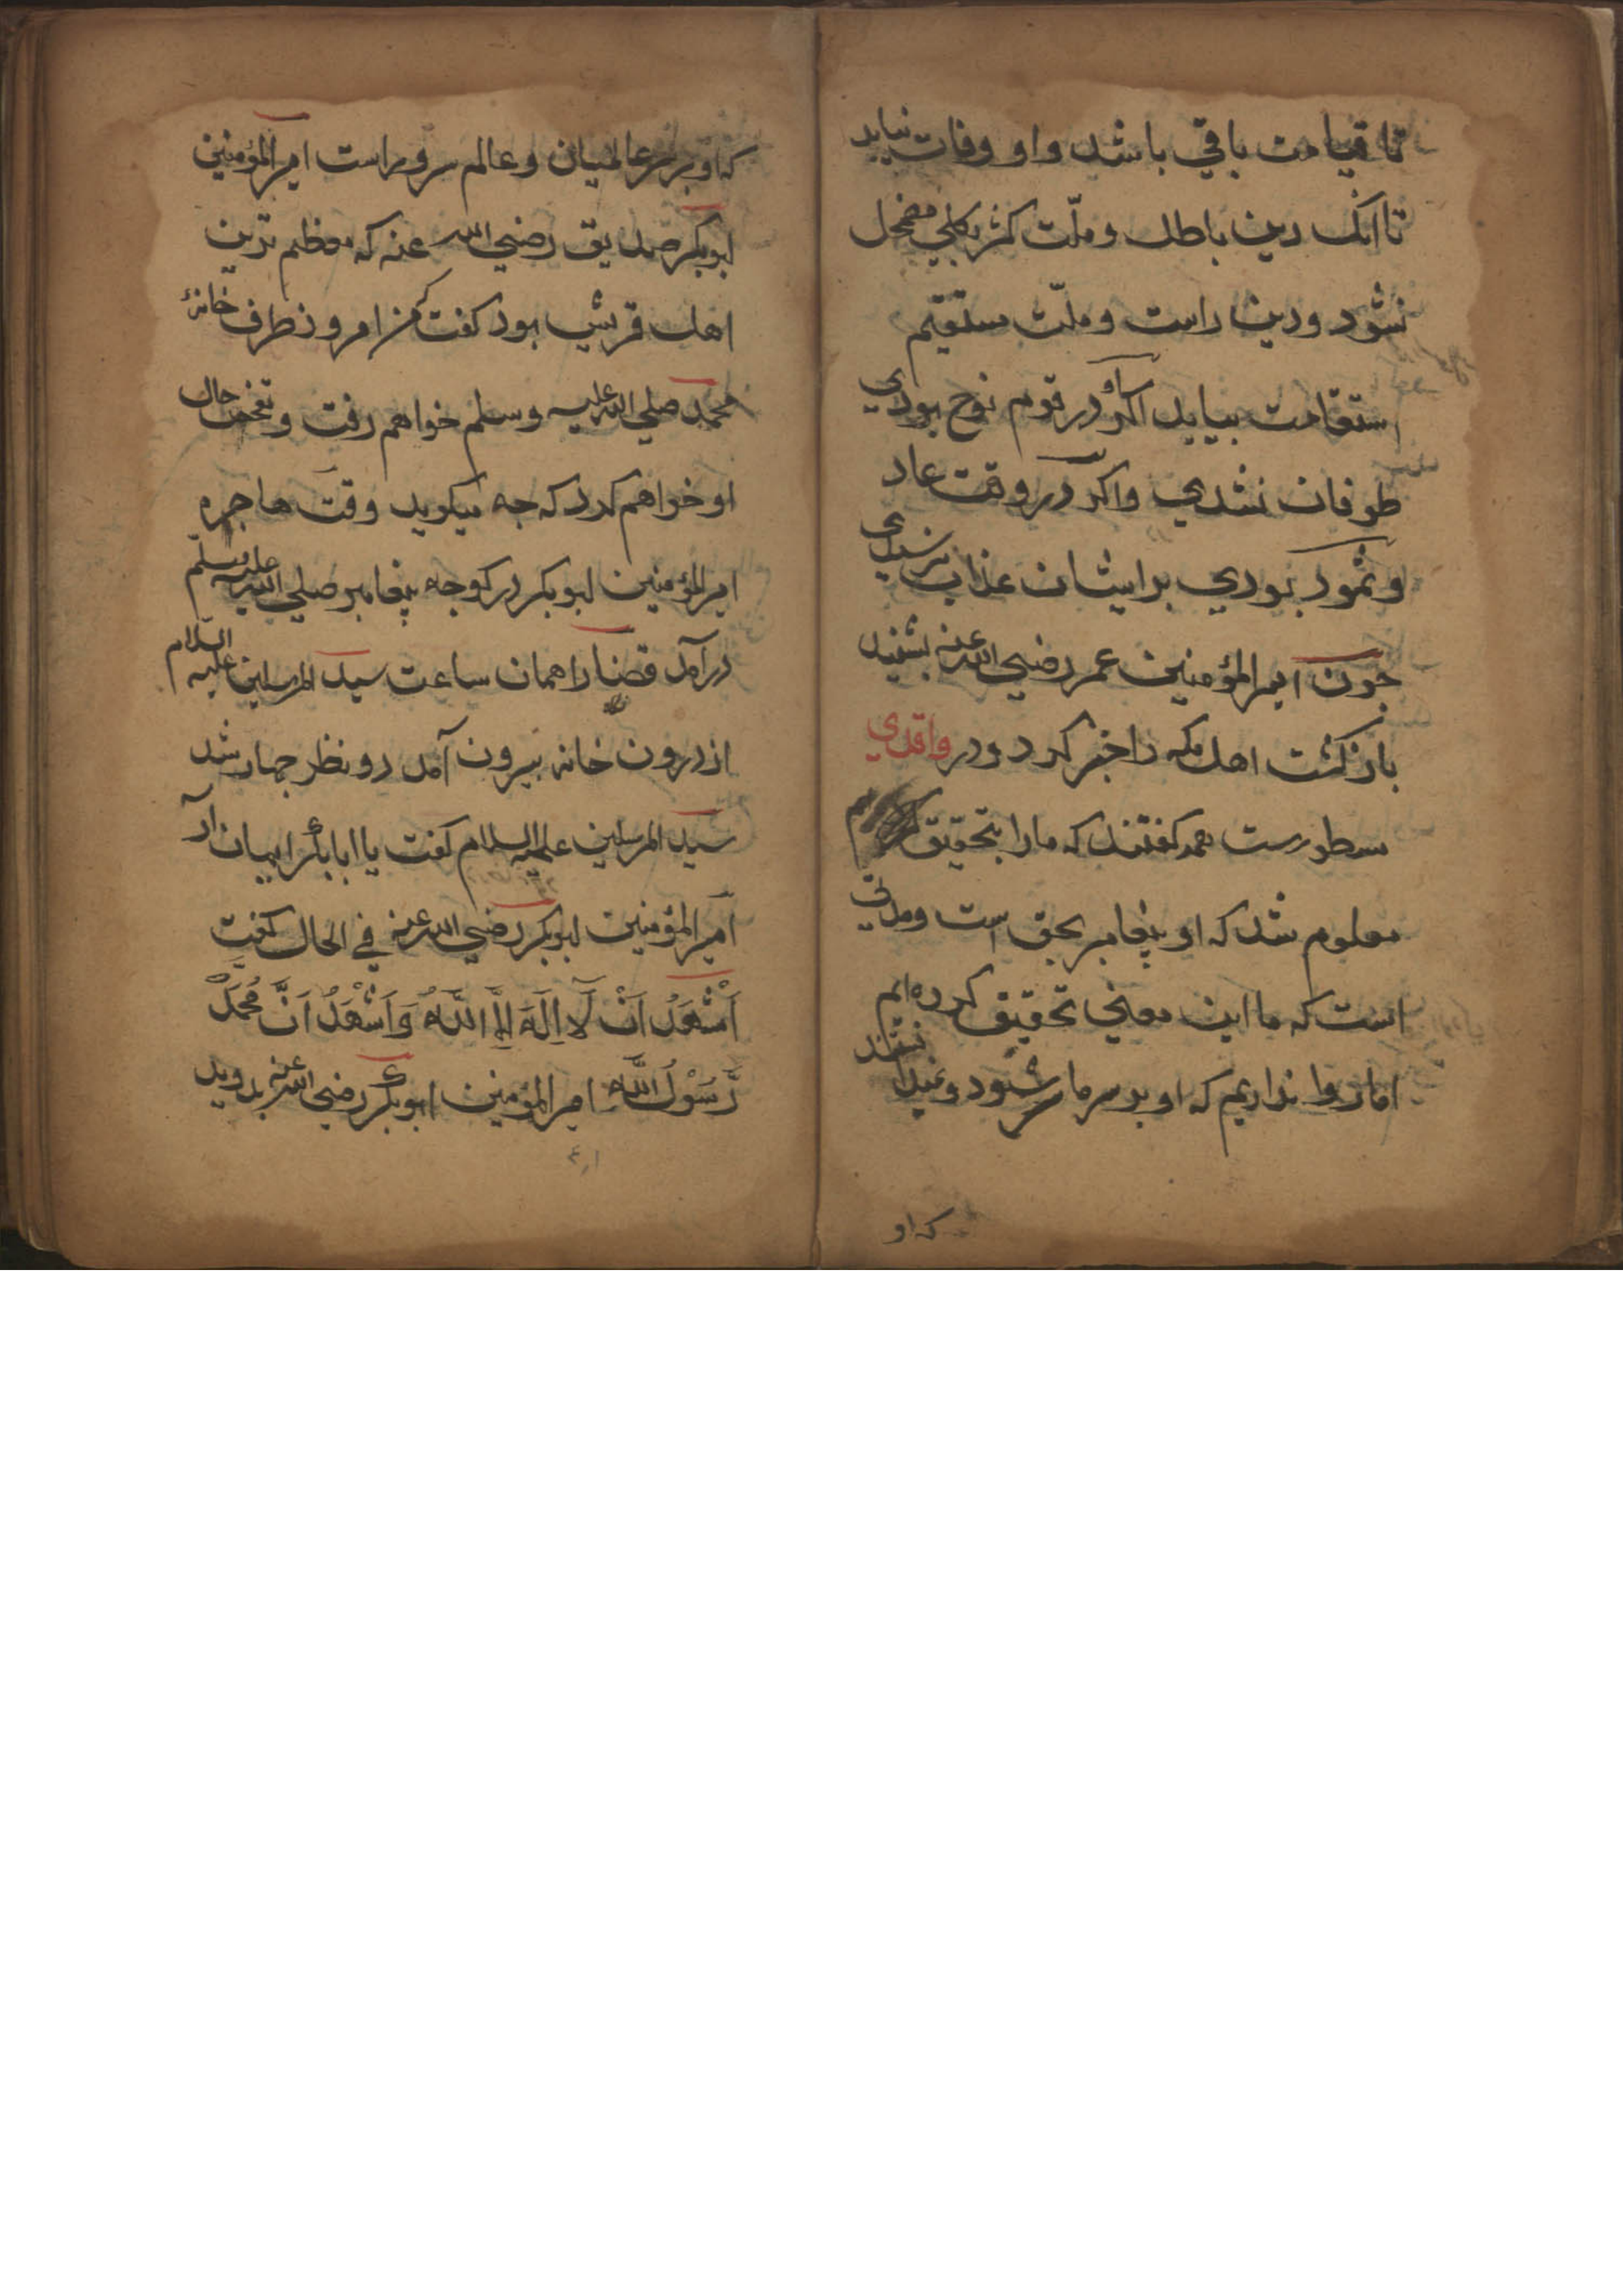 تا قیامت باقي باشد واو وفات نیابد
تا انک دین باطل و ملّت کفر بکلي مضمحل
نشود و دین راست و ملّت مستقیم
استقامت بیابد اکر او در قوم نوح بودي
طوفان نشدي واکر در وقت عاد
و ثمود بودي بر ایشان عذاب نرسیدي
جون امیر المؤمنین عمر رضي الله عنه بشنید
باز کشت اهل مکه را خبر کرد و در واقدي
مسطورست همه کفتند که ما را بتحقیق
معلوم شد که او پیغامبر بحق است ومدتي
است که ما این معني تحقیق کرده ایم
اما روا نداریم که او بر سر ما سر شود و
که او
که او بر سر عالمیان و عالم سرور است امیر المؤمنین
ابوبکر صدیق رضي الله عنه که معظم ترین
اهل قریش بود کفت که من امروز طرف خانهٔ
محمد صلي الله علیه وسلم خواهم رفت و تفحص حال
او خواهم کرد که جه میکوید وقت هاجره
امیر المؤمنین ابوبکر در کوجه پیغامبر صلي الله علیه وسلم
درآمد قضا را همان ساعت سید المرسلین علیه السلام
از درون خانه بیرون آمد دو نظر جهار شد
سید المرسلین علیه السلام کفت یا ابابکر ایمان آر
امیر المؤمنین ابوبکر رضي الله عنه في الحال کفت
اَشْهَدُ اَنْ لَا اِلٰهَ اِلَّا اللّٰهُ وَاَشْهَدُ اَنَّ مُحَمَّدً
رَّسُوْلُ اللّٰه امیر المؤمنین ابوبکر رضي الله عنه بدوید